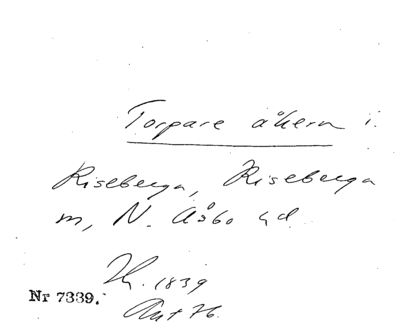 Torpare åkern i.
Riseberga, Riseberga
m, N. Åsbo hd
H. 1839
Nr 7339.
76.